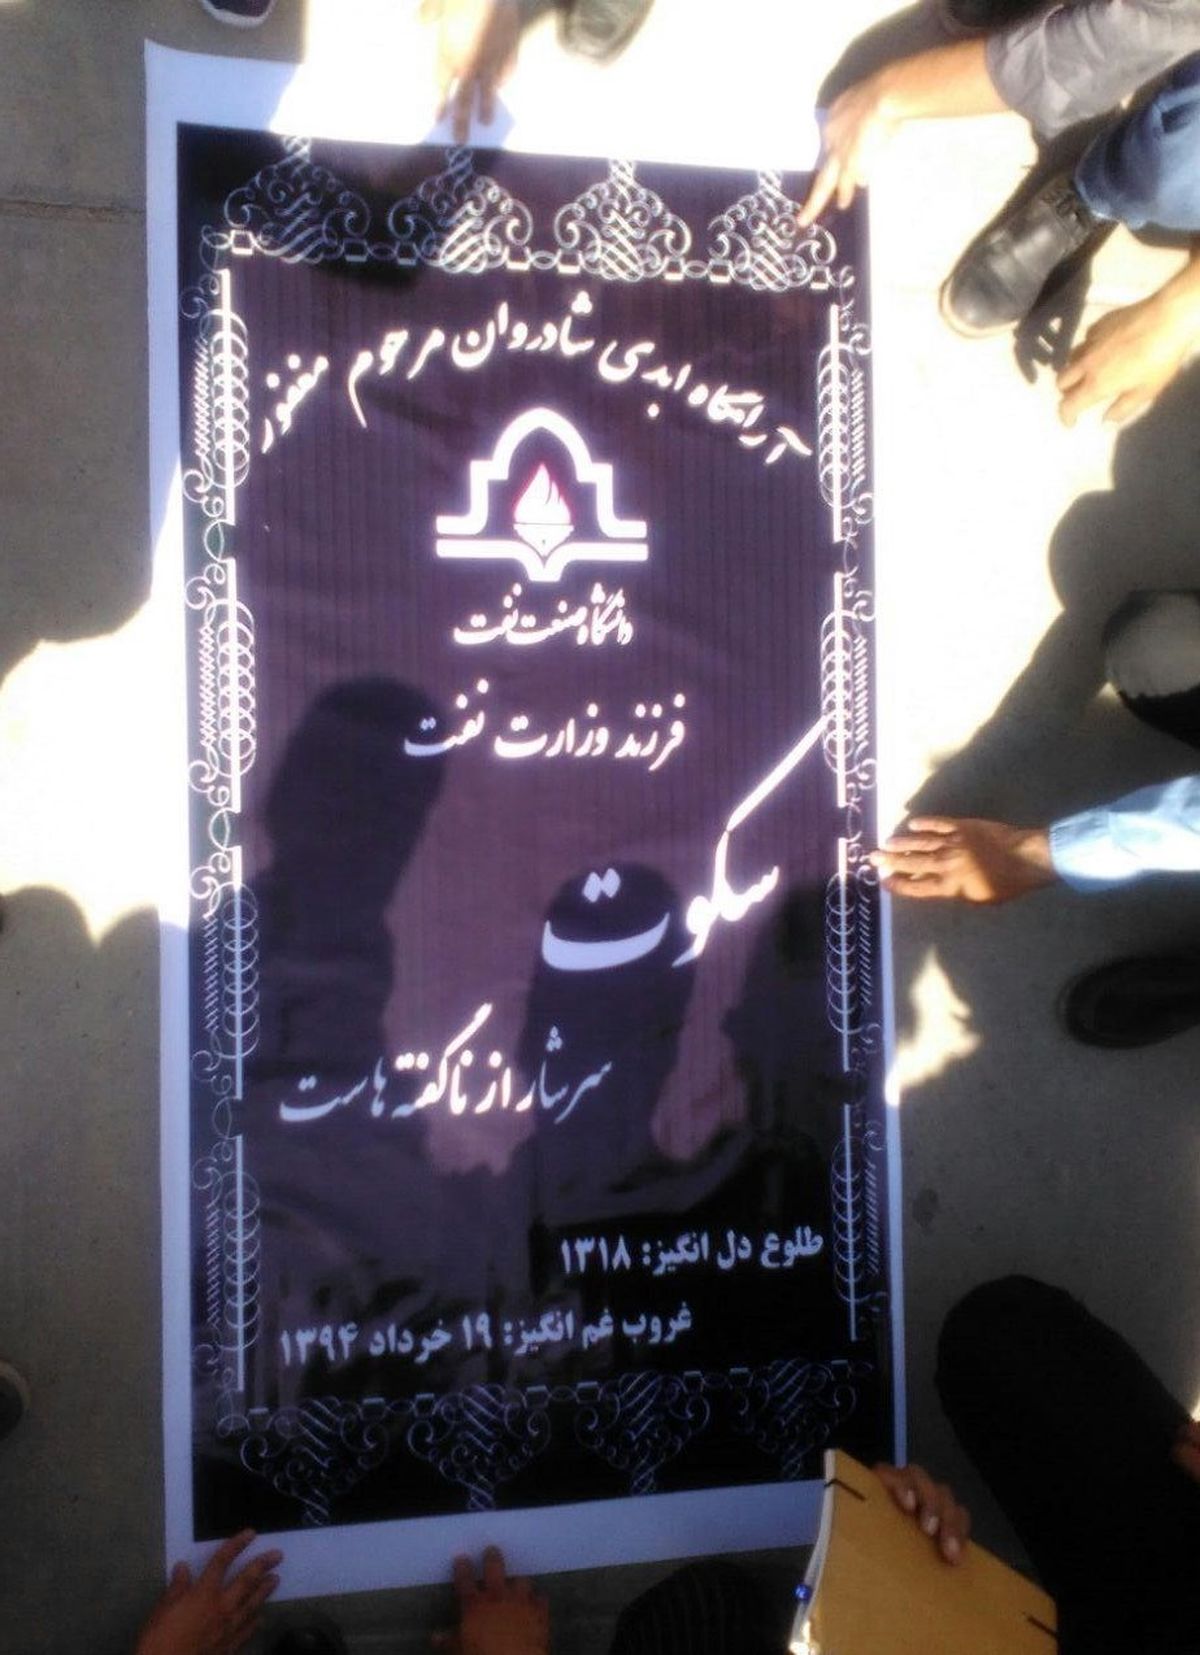 آرامگاه ابدی شادروان مرحوم مغفور
دانشگاه صنعت نفت
فرزند وزارت نفت
سکوت
سرشار از ناگفته هاست
طلوع دل انگیز: ۱۳۱۸
غروب غم انگیز: ۱۹ خرداد ۱۳۹۴